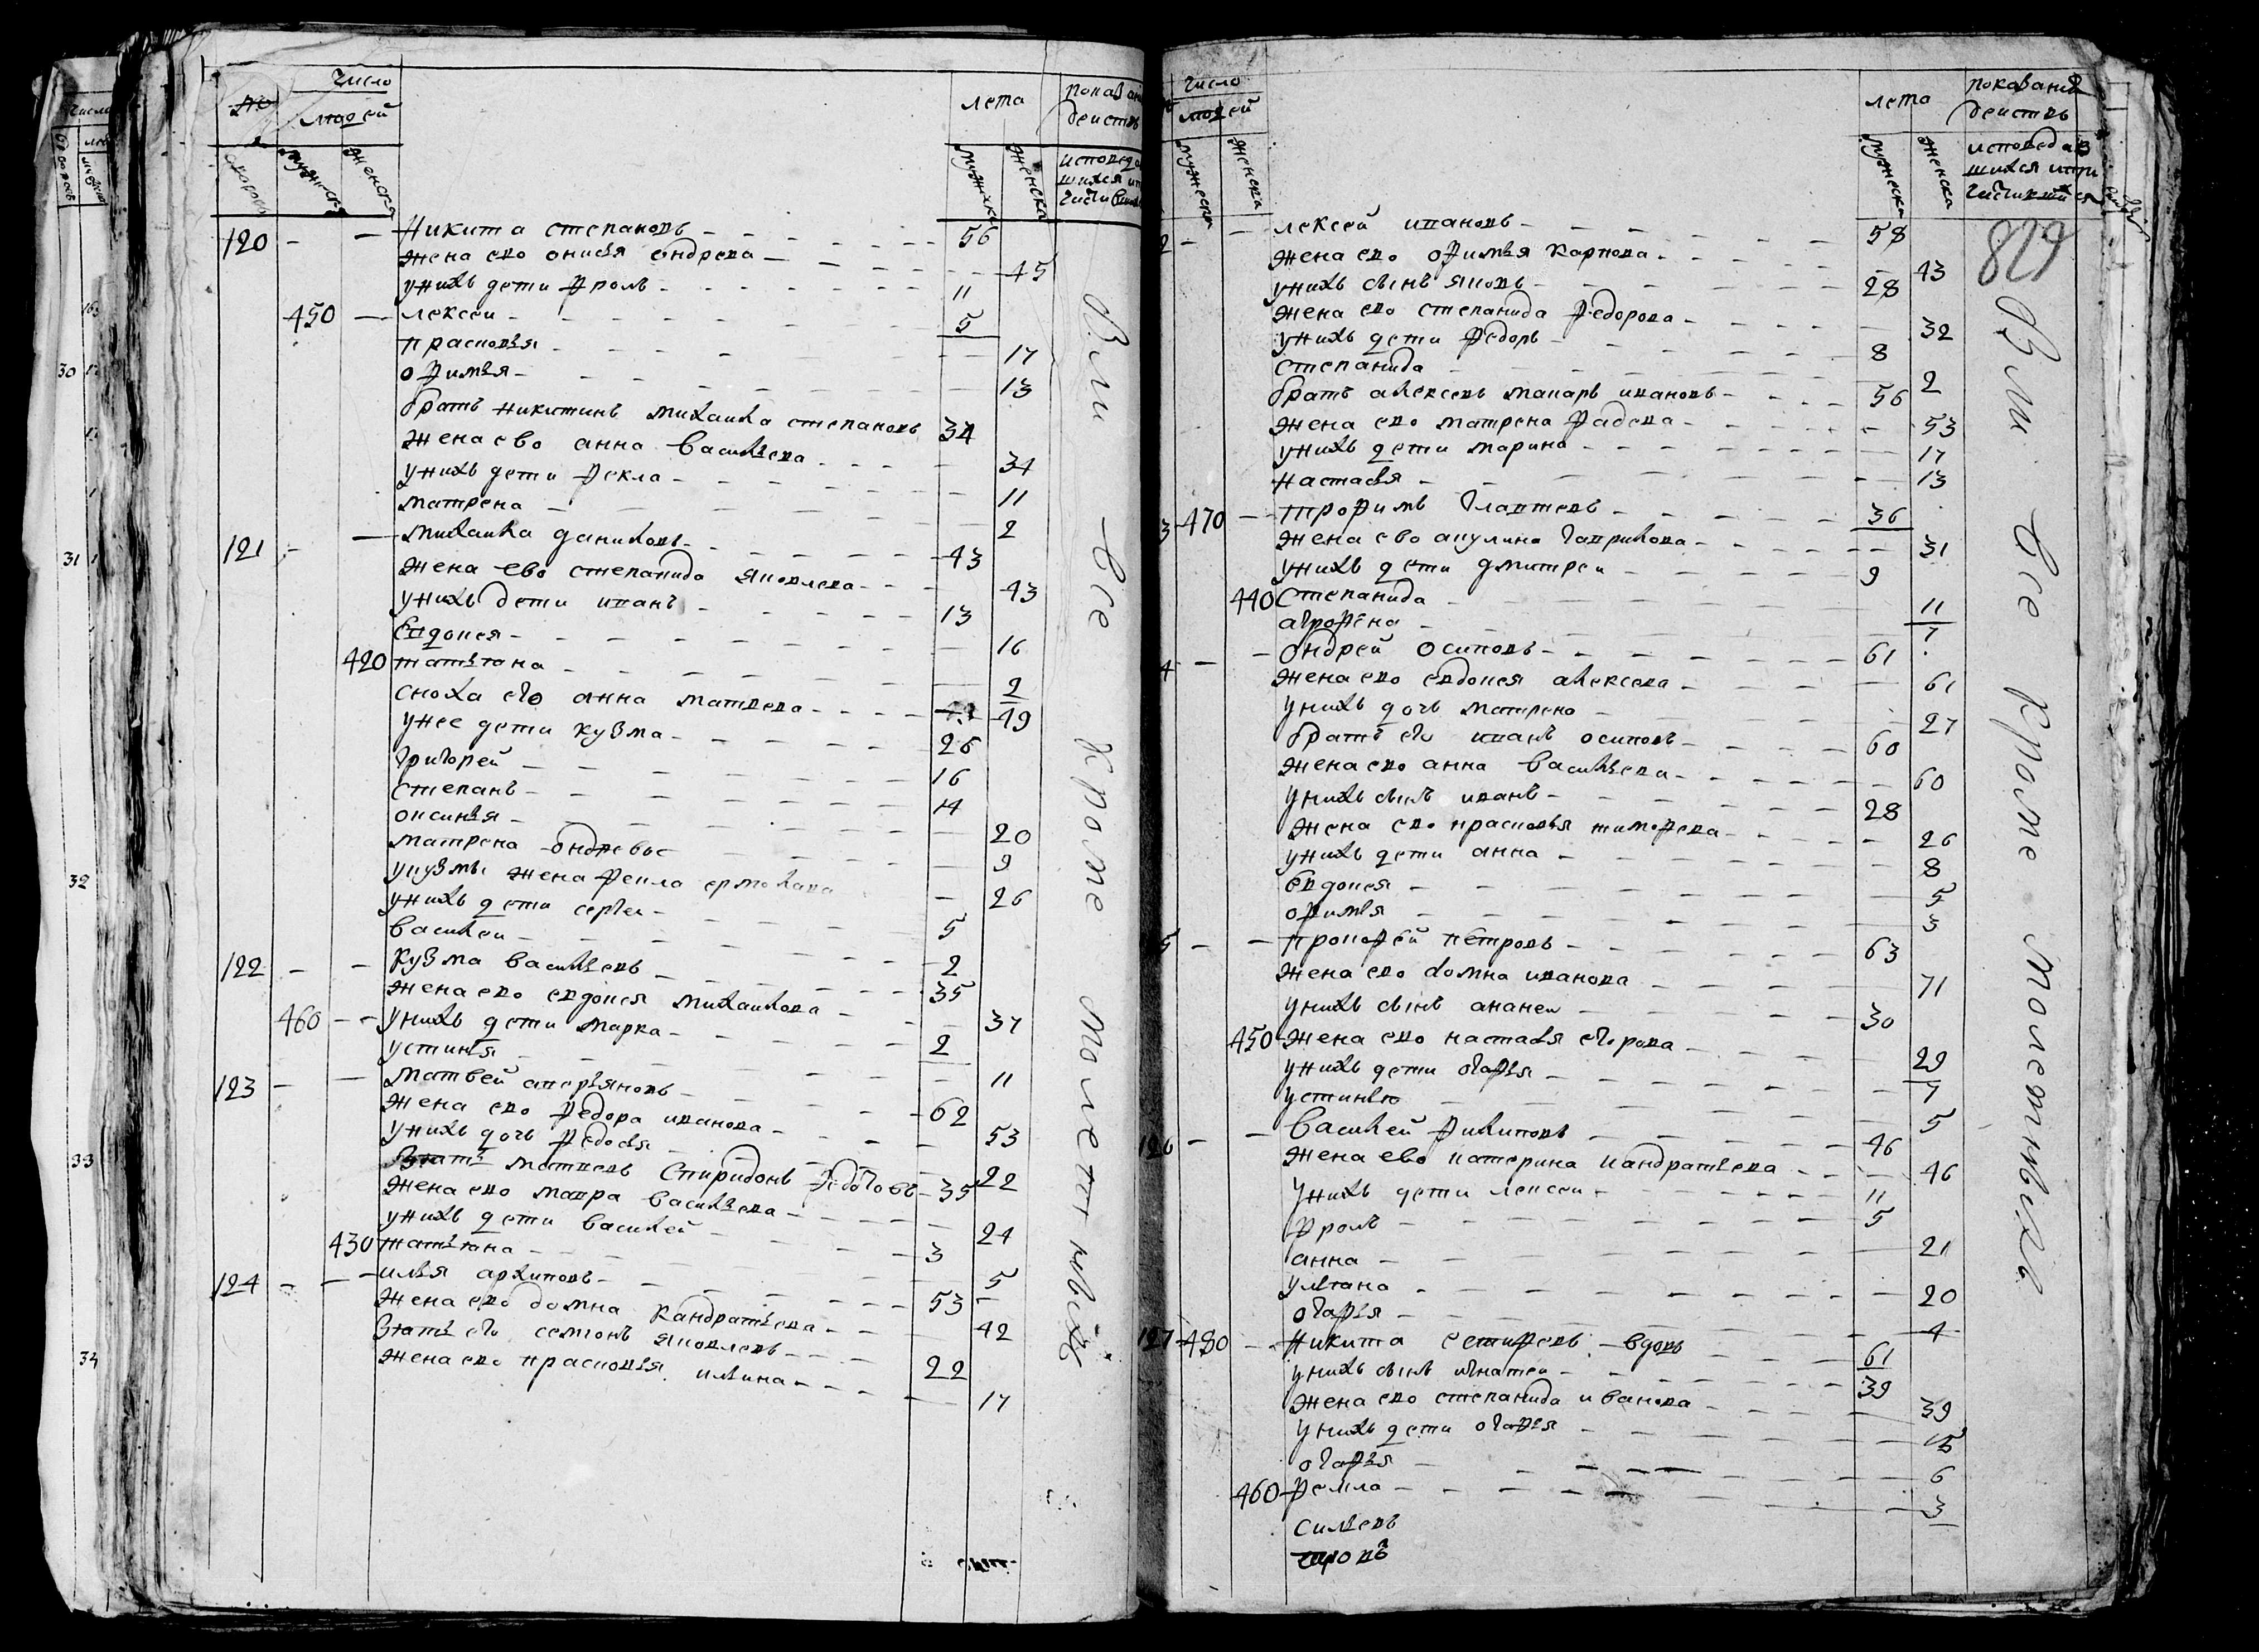 число
людей
лета
мужска
женска
120 Никита степановъ 56
жена ево онисья ондрева 45
унихъ дети фролъ 11
450 лексеи 5
прасковья 17
офимья 13
братъ никитинъ михаила степановъ 34
жена ево анна васильева 34
унихъ дети фекла 11
матрена 2
121 михаила даниловъ 43
жена ево степанида яковлева 43
унихъ дети иванъ 13
евдокея 16
420 татьяна 2
сноха его анна матвева 49
унее дети кузма 26
григорей 16
степанъ 14
оксинья 20
матрена ондревы 9
укузмы жена фекла ермолаева 26
унихъ дети сергеи 5
василеи 2
122 кузма василевъ 35
жена ево евдокея михаилова 37
460 унихъ дети марка 2
устинья 11
123 матвей аверьяновъ 62
жена ево федора иванова 53
унихъ дочь федосья 22
зять матвевъ спиридонъ федотовъ 35
жена ево мавра василева 24
унихъ дети василей 3
430 татьяна 5
124 илья архиповъ 53
жена ево домна кандратьева 42
зять его семіонъ яковлевъ 22
жена ево прасковья илина 17
Вси все кроме
число
людей
мужеска
женска
лета
мужеска
женска
показание
действъ
исповедав
шихся ипри
829
лексей ивановъ 58
жена ево офимья карпова 43
унихъ сынъ яковъ 28
жена ево степанида федорова 32
унихъ дети федоръ 8
степанида 2
братъ алексевъ макаръ ивановъ 56
жена ево матрена фадева 53
унихъ дети марина 17
настасья 13
3 470 трофимъ лаптевъ 36
жена ево акулина гаврилова 31
унихъ дети дмитреи 9
440 степанида 11
аграфена 7
4 ондрей осиповъ 61
жена ево евдокея алексева 61
унихъ дочь матрена 27
братъ его иванъ осиповъ 60
жена ево анна васильева 60
унихъ сынъ иванъ 28
жена ево прасковья тимофева 26
унихъ дети анна 8
евдокея 5
офимья 3
5 прокофей петровъ 63
жена ево домна иванова 71
унихъ сынъ ананеи 30
450 жена ево настасья егорова 29
унихъ дети агафья 7
устинья 5
126 василей филиповъ 46
жена ево катерина кандратьева 46
унихъ дети лексеи 11
фролъ 5
анна 21
ульяна 20
огафья 4
127 480 никита естифевъ вдовъ 61
унихъ сынъ игнатеи 39
жена ево степанида иванова 39
унихъ дети огафья 15
огафья 6
460 фекла 3
Вси все кроме